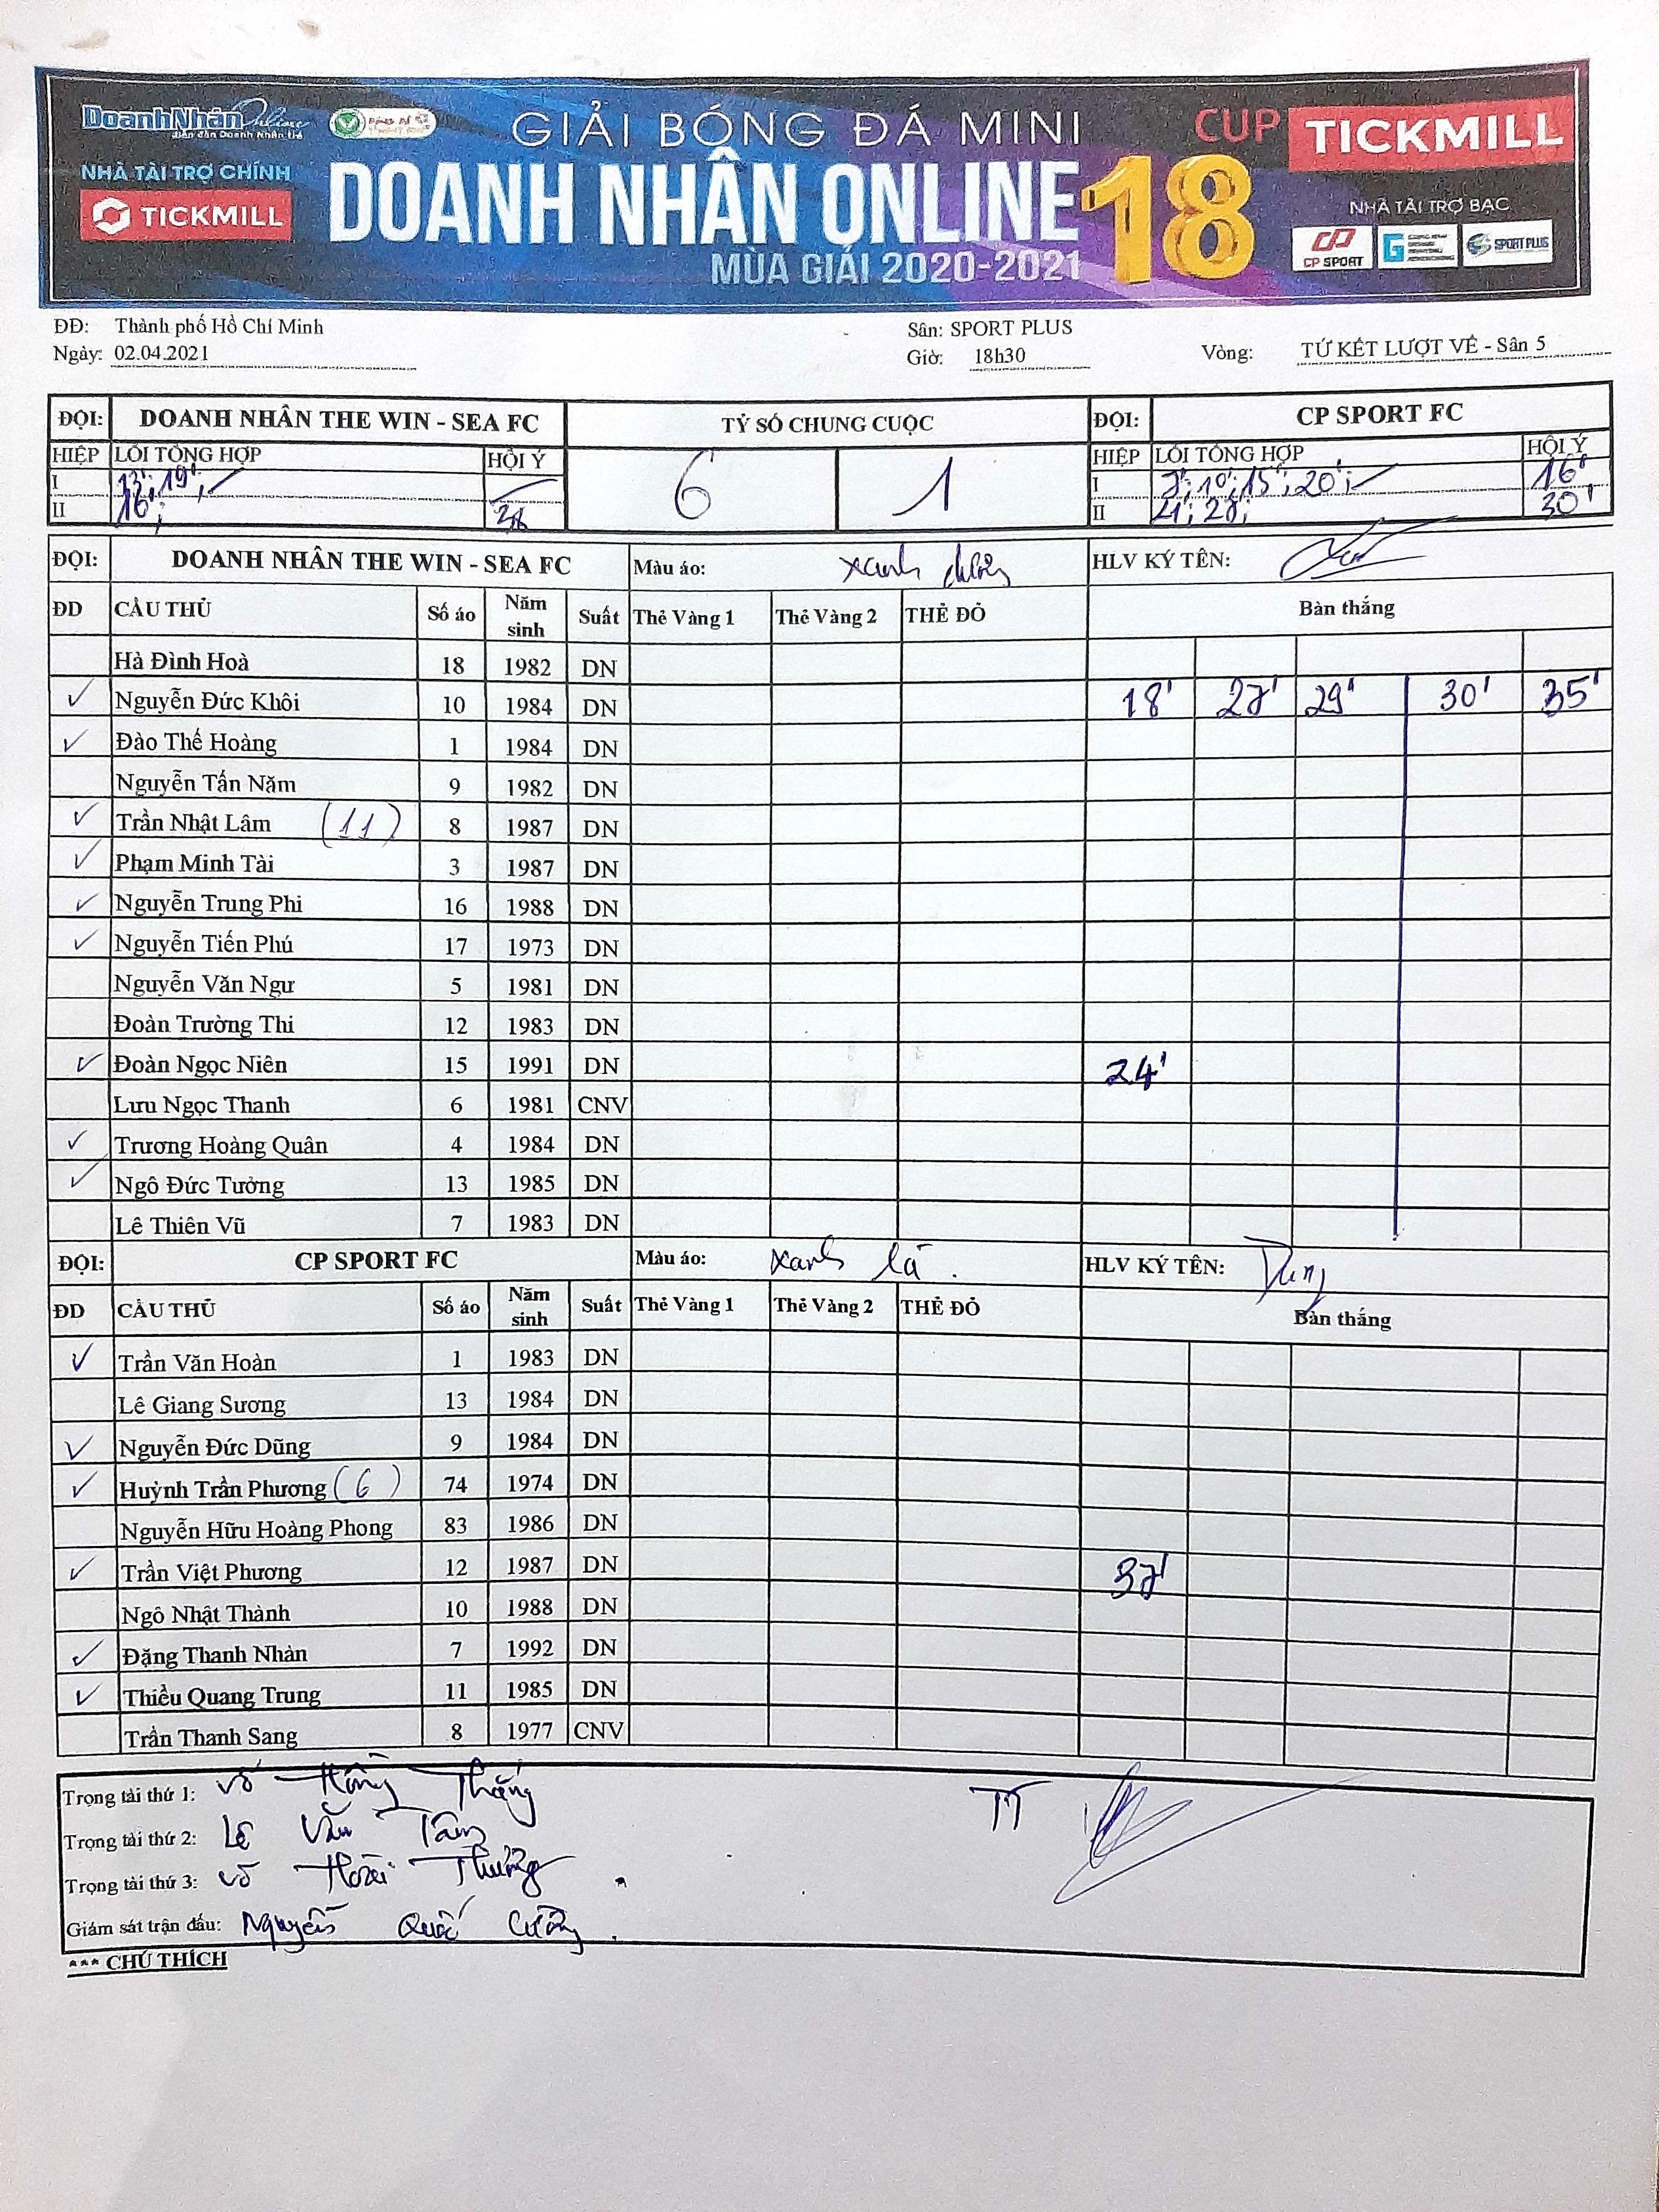 DoanhNhânOnline
diễn đàn Doanh Nhân trẻ
GIẢI BÓNG ĐÁ MINI
CUP TICKMILL
NHÀ TÀI TRỢ CHÍNH
TICKMILL
DOANH NHÂN ONLINE 18
MÙA GIẢI 2020-2021
NHÀ TÀI TRỢ BẠC
CP SPORT
SPORT PLUS
ĐĐ: Thành phố Hồ Chí Minh Sân: SPORT PLUS
Ngày: 02.04.2021 Giờ: 18h30 Vòng: TỨ KẾT LƯỢT VỀ - Sân 5
ĐỘI: DOANH NHÂN THE WIN - SEA FC TỶ SỐ CHUNG CUỘC ĐỘI: CP SPORT FC
HIỆP LỖI TỔNG HỢP HỘI Ý 6 1 HIỆP LỖI TỔNG HỢP HỘI Ý
I 13'; 19'; I 7'; 10'; 15'; 20'; 16'
II 16'; II 21'; 27'; 30'
ĐỘI: DOANH NHÂN THE WIN - SEA FC Màu áo: xanh dương HLV KÝ TÊN:
ĐD CẦU THỦ Số áo Năm sinh Suất Thẻ Vàng 1 Thẻ Vàng 2 THẺ ĐỎ Bàn thắng
Hà Đình Hoà 18 1982 DN
✓ Nguyễn Đức Khôi 10 1984 DN 18' 27' 29' 30' 35'
✓ Đào Thế Hoàng 1 1984 DN
Nguyễn Tấn Năm 9 1982 DN
✓ Trần Nhật Lâm (11) 8 1987 DN
✓ Phạm Minh Tài 3 1987 DN
✓ Nguyễn Trung Phi 16 1988 DN
✓ Nguyễn Tiến Phú 17 1973 DN
Nguyễn Văn Ngư 5 1981 DN
Đoàn Trường Thi 12 1983 DN
✓ Đoàn Ngọc Niên 15 1991 DN 24'
Lưu Ngọc Thanh 6 1981 CNV
✓ Trương Hoàng Quân 4 1984 DN
✓ Ngô Đức Tưởng 13 1985 DN
Lê Thiên Vũ 7 1983 DN
ĐỘI: CP SPORT FC Màu áo: xanh lá. HLV KÝ TÊN: Dũng
ĐD CẦU THỦ Số áo Năm sinh Suất Thẻ Vàng 1 Thẻ Vàng 2 THẺ ĐỎ Bàn thắng
✓ Trần Văn Hoàn 1 1983 DN
Lê Giang Sương 13 1984 DN
✓ Nguyễn Đức Dũng 9 1984 DN
✓ Huỳnh Trần Phương (6) 74 1974 DN
Nguyễn Hữu Hoàng Phong 83 1986 DN
✓ Trần Việt Phương 12 1987 DN 37'
Ngô Nhật Thành 10 1988 DN
✓ Đặng Thanh Nhàn 7 1992 DN
✓ Thiều Quang Trung 11 1985 DN
Trần Thanh Sang 8 1977 CNV
Trọng tài thứ 1: Võ Hồng Thắng TT
Trọng tài thứ 2: Lê Văn Tâm
Trọng tài thứ 3: Võ Hoài Thưởng
Giám sát trận đấu: Nguyễn Quốc Cường.
*** CHÚ THÍCH